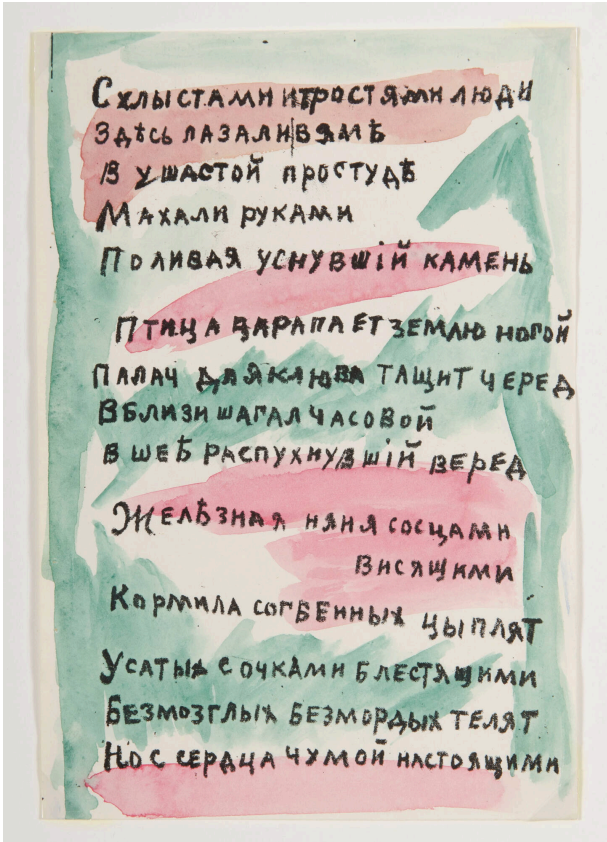 С хлыстами и тростями люди
Здѣсь лазали в ямѣ
В ушастой простудѣ
Махали руками
Поливая уснувшій камень
Птица царапает землю ногой
Палач для клюва тащит черед
Вблизи шагал часовой
В шеѣ распухнувшій веред
Желѣзная няня сосцами
висящими
Кормила согбенных цыплят
Усатых с очками блестящими
Безмозглых безмордых телят
Но с сердца чумой настоящими